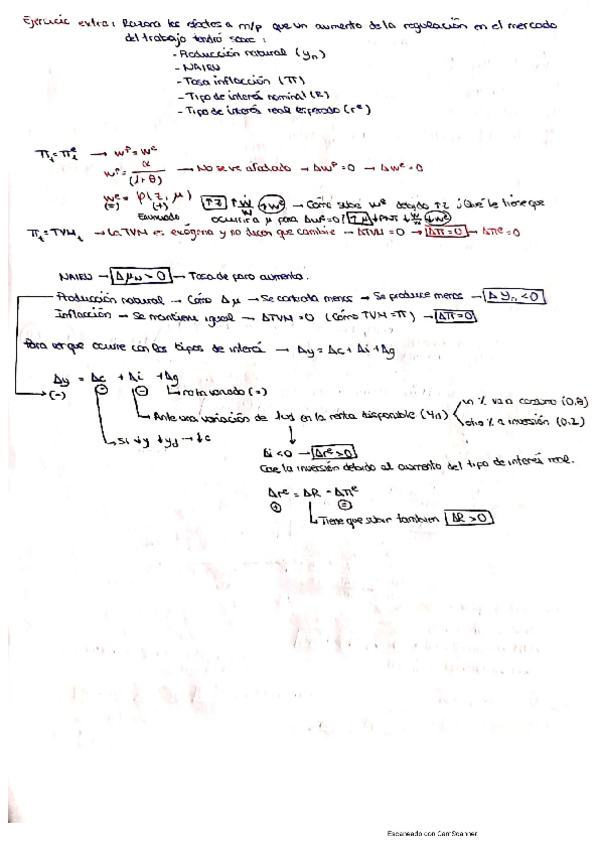 Ejercicio extra: Razona los efectos a m/p que un aumento de la regulación en el mercado
del trabajo tendrá sobre:
- Producción natural (yn)
- NAIRU
- Tasa inflacción (π)
- Tipo de interés nominal (R)
- Tipo de interés real esperado (rᵉ)
π₁ = π₁ᵉ → wᵖ = wᵉ
wᵖ = α/(1+θ) → No se ve afectado → Δwᵖ = 0 → Δwᵉ = 0
wᵉ = ρ(z, μ) ↑z ↑w/w ↑wᵉ → Cómo sube wᵉ debido ↑z ¿Qué le tiene que
(=) (+) ocurrir a μ para Δwᵉ = 0? ↑μ ↓w/w ↓wᵉ
Enunciado
π₁ = TVM₁ → La TVM es exógena y no dicen que cambie → ΔTVM = 0 → Δπ = 0 → Δπᵉ = 0
NAIRU → Δμn > 0 → Tasa de paro aumenta.
Producción natural → Cómo Δμ → Se contrata menos → Se produce menos → Δyn < 0
Inflacción → Se mantiene igual → ΔTVM = 0 (Cómo TVM = π) → Δπ = 0
Para ver que ocurre con los tipos de interés → Δy = Δc + Δi + Δg
Δy = Δc + Δi + Δg
(-) (-) (-) no ha variado (=)
Ante una variación de en la renta disponible (yd) un % va a consumo (0.8)
otro % a inversión (0.2)
Si ↓y ↓yd → ↓c
Δi < 0 → Δrᵉ > 0
Cae la inversión debido al aumento del tipo de interés real.
Δrᵉ = ΔR - Δπᵉ
(+) (=)
Tiene que subir también ΔR > 0
Escaneado con CamScanner